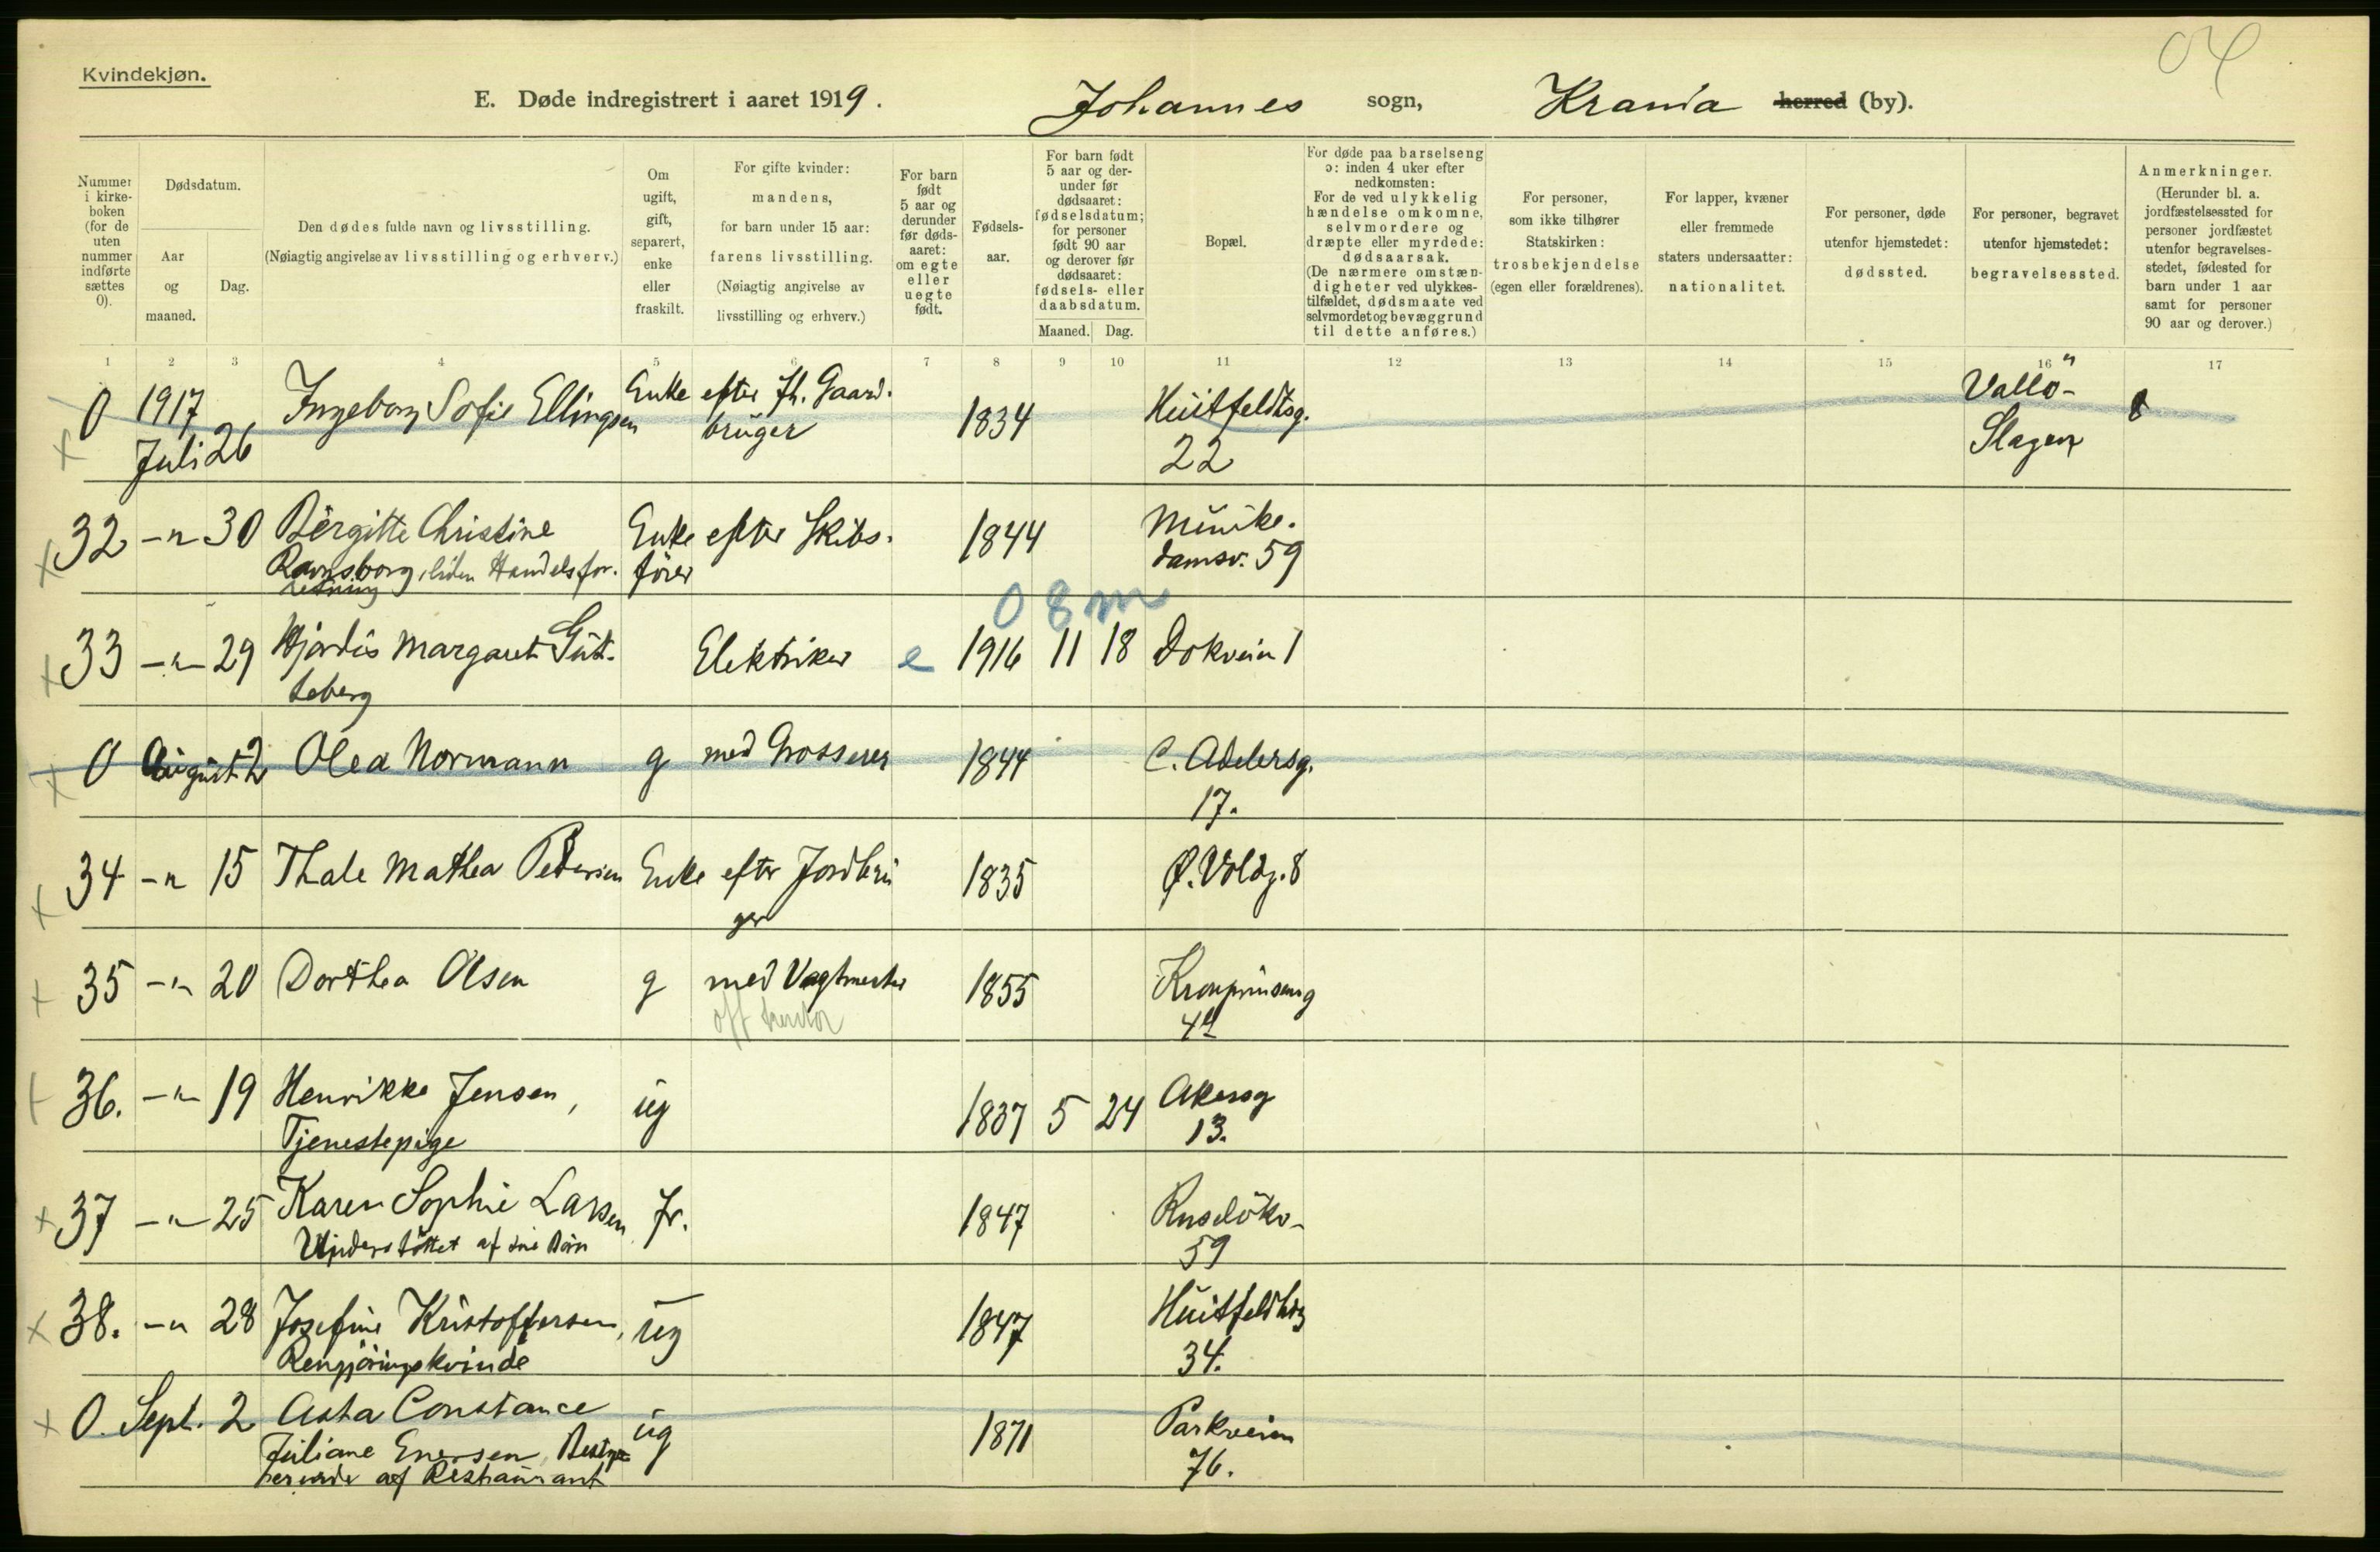 04
Kvindekjøn.
E. Døde indregistrert i aaret 1919. Johannes sogn, Krania herred (by).
Nummer i kirke-boken (for de uten nummer indførte sættes 0).
Dødsdatum.
Aar og maaned.
Dag.
Den dødes fulde navn og livsstilling.
(Nøiagtig angivelse av livsstilling og erhverv.)
Om ugift, gift, separert, enke eller fraskilt.
For gifte kvinder: mandens, for barn under 15 aar: farens livsstilling. (Nøiagtig angivelse av livsstilling og erhverv.)
For barn født 5 aar og derunder før døds-aaret: om egte eller uegte født.
Fødsels-aar.
For barn født 5 aar og der-under før dødsaaret: fødselsdatum; for personer født 90 aar og derover før dødsaaret: fødsels- eller daabsdatum.
Maaned. Dag.
Bopæl.
For døde paa barselseng ɔ: inden 4 uker efter nedkomsten: For de ved ulykkelig hændelse omkomne, selvmordere og dræpte eller myrdede: dødsaarsak. (De nærmere omstæn-digheter ved ulykkes-tilfældet, dødsmaate ved selvmordet og bevæggrund til dette anføres.)
For personer, som ikke tilhører Statskirken: trosbekjendelse (egen eller forældrenes).
For lapper, kvæner eller fremmede staters undersaatter: nationalitet.
For personer, døde utenfor hjemstedet: dødssted.
For personer, begravet utenfor hjemstedet: begravelsessted.
Anmerkninger. (Herunder bl. a. jordfæstelsessted for personer jordfæstet utenfor begravelses-stedet, fødested for barn under 1 aar samt for personer 90 aar og derover.)
1 2 3 4 5 6 7 8 9 10 11 12 13 14 15 16 17
0 1917 Juli 26 Ingeborg Sofie Ellingsen Enke efter fh. Gaard-brüger 1834 Huitfeldtsg. 22 Vallö-Slagen
32 -"- 30 Bergitte Christine Ravnsborg, liden Handelsfor-retning Enke efter Skibs-förer 1844 Munke-damsv. 59
0 8 m
33 -"- 29 Hjørdis Margaret Gut-teberg Elektriker e 1916 11 18 Dokveien 1
0 August 2 Olea Normann g med Grosserer 1844 C. Adelersg. 17.
34 -"- 15 Thale Mathea Pedersen Enke efter Jordbrü ger 1835 Ø. Voldg. 8
35 -"- 20 Dorthea Olsen g med Vagtmester 1855 Kronprinsensg
36. -"- 19 Henrikke Jensen, Tjenestepige ug 1837 5 24 Akersg 13.
37 -"- 25 Karen Sophie Larsen Understöttet af sine Børn fr. 1847 Ruselökv- 59
38. -"- 28 Josefine Kristoffersen, Rengjöringskvinde ug 1847 Huitfeldtsg 34.
0. Sept. 2 Asta Constance Juliane Enersen, Bestyrerinde af Restaurant ug 1871 Parkveien 76.